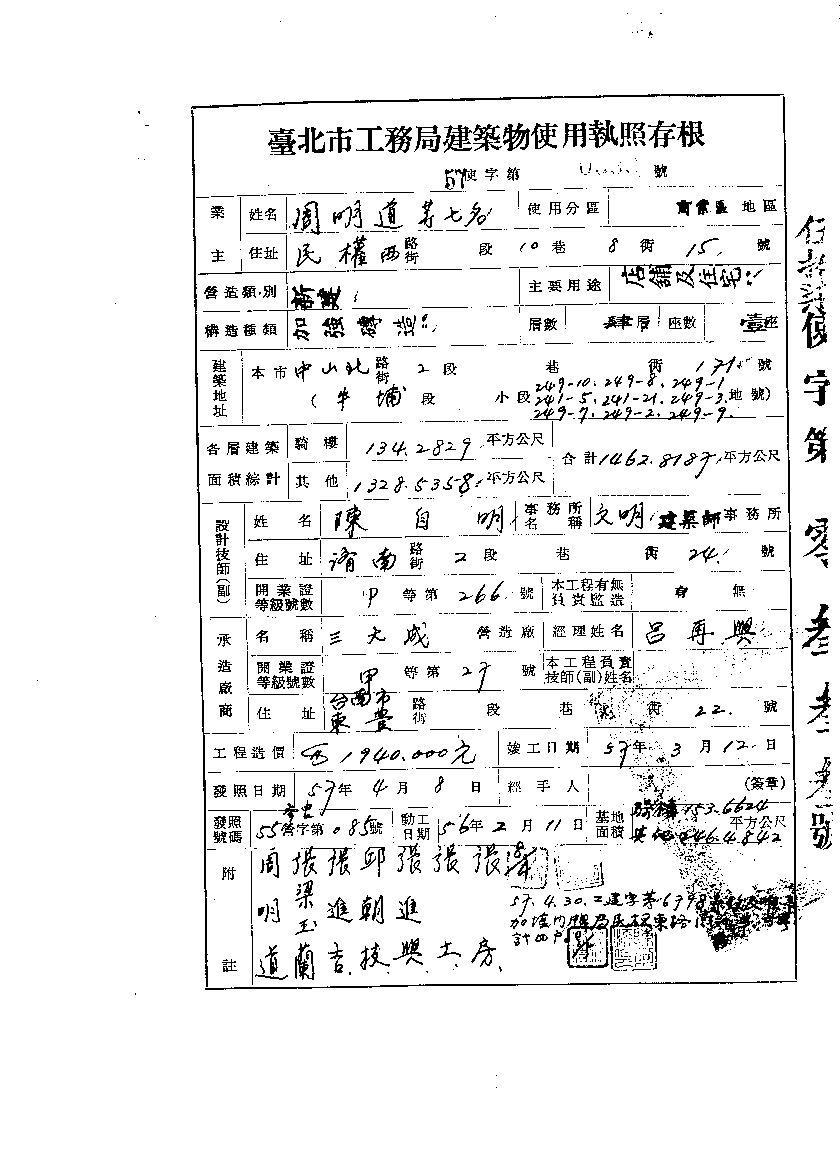 臺北市工務局建築物使用執照存根
57使字第 號
業主 姓名 周明道等七名 使用分區 商業區地區
住址 民權西路街 段10巷8街15號
營造類別 新建 主要用途 店舖及住宅
構造種類 加強磚造 層數 肆層 座數 壹座
建築地址 本市中山北路街2段 巷 街171號
(牛埔段 小段 249-10、249-8、249-1
241-5、241-21、249-3、地號)
249-7、249-2、249-9、
各層建築面積綜計 騎樓 134.2829平方公尺 合計1462.8187平方公尺
其他 1328.5358平方公尺
設計技師(副) 姓名 陳自明 事務所名稱 文明建築師事務所
住址 濟南路街2段 巷 街24號
開業證等級號數 甲等第266號 本工程有無負責監造 有 無
承造廠商 名稱 三大成營造廠 經理姓名 呂再興
開業證等級號數 甲等第27號 本工程負責技師(副)姓名
住址 台南市東豊路街 段 巷 街22號
工程造價 1940.000元 竣工日期 57年3月12日
發照日期 57年4月8日 經手人 (簽章)
發照號碼 55營字第085號 動工日期 56年2月11日 基地面積 騎樓153.6624 其他446.4842平方公尺
附註 周明道 張梁玉蘭 張進吉 邱朝枝 張進興 張土 張房
57.4.30.工建字第6798
伍拾柒使字第零叁叁叁號